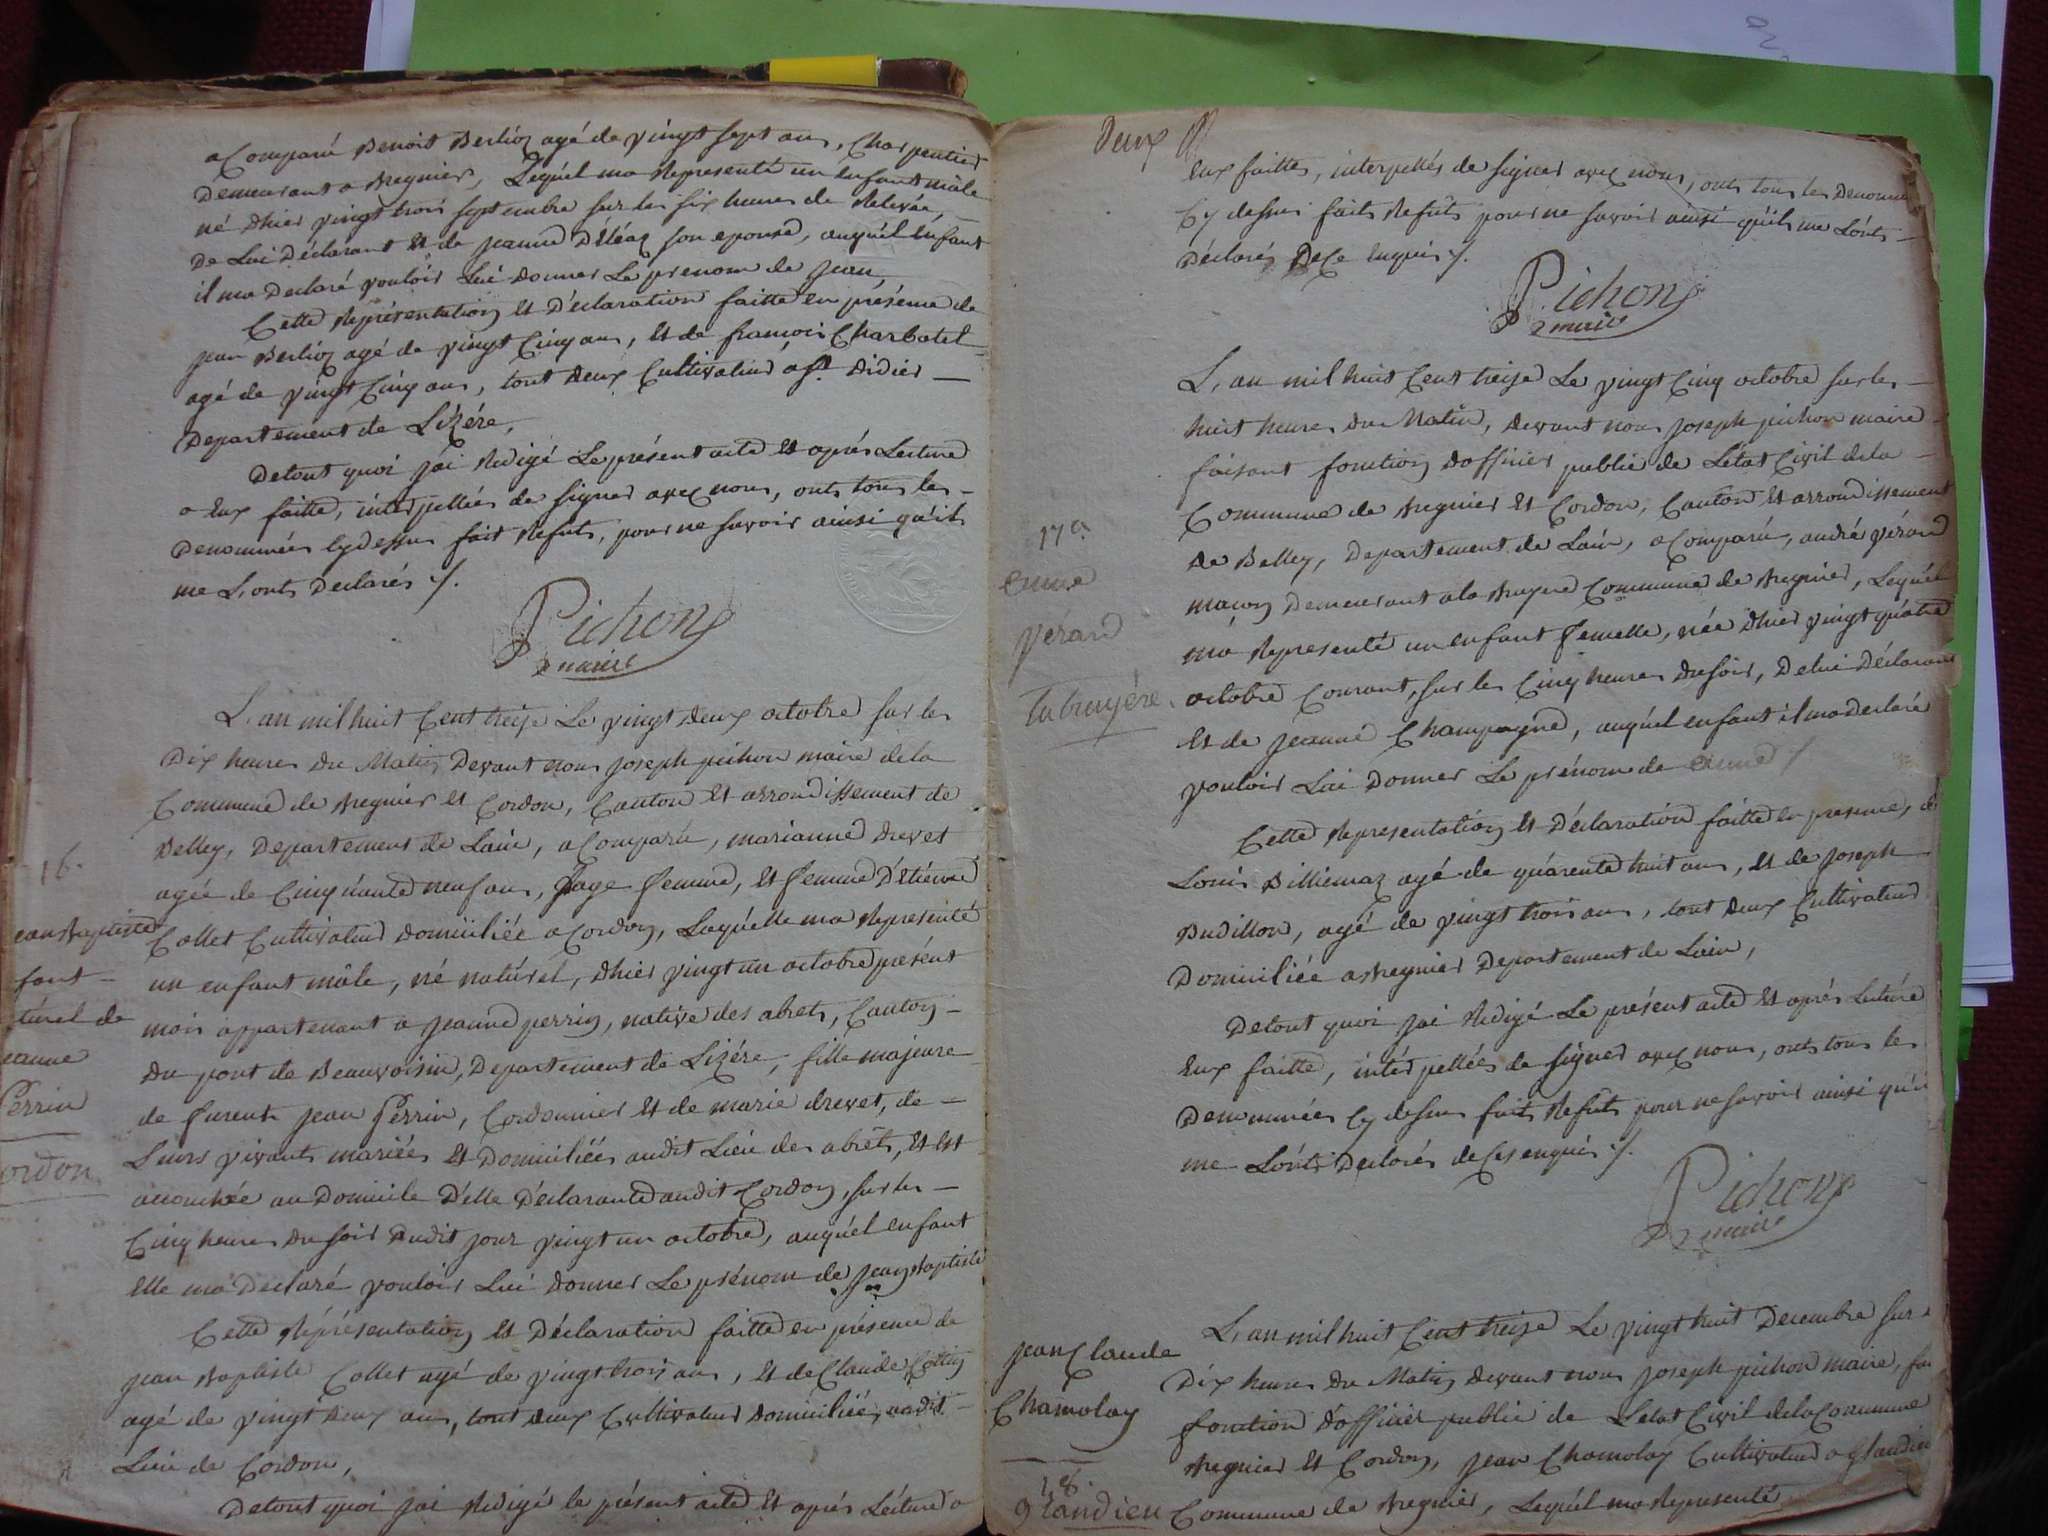 a Comparu Benoit Berlioz agé de vingt sept ans, Charpentier
Demeurant a Bregnier, Lequél ma Representé un enfant mâle
né dhier vingt trois septembre sur les six heures de Relevée,
De Lui Déclarant et de jeanne son epouse, auquél enfant
il ma Declaré vouloir Lui donner Le prenom de Jean
Cette Représentation et Déclaration faitte en présence de
jean Berlioz agé de vingt Cinq ans, et de francois Charbotel
agé de vingt Cinq ans, tout deux Cultivateurs a St. Didier
Departement de Lizére,
Detout quoi j'ai Redigé Le présent acte et aprés Lecture
a Eux faitte, interpellées de signer avec nous, onts tous les
Denommées Cydessus fait Refuts, pour ne savoir ainsi qu'ils
me L'onts Declarés ./.
Pichon
maire
L'an mil huit Cent treize Le vingt deux octobre sur les
Dix heures du Matin Devant nous joseph pichon maire dela
Commune de Bregnier et Cordon, Canton et arrondissement de
Belley, Departement de Lain, a Comparu, marianne drevet
agée de Cinquante neuf ans, sage femme, et femme d'Etienne
Collet Cultivateur domiciliée a Cordon, Laquélle ma Representé
un enfant mâle, né naturel, dhier vingt un octobre présent
mois appartenant a jeanne perrin, native des abrets, Canton
du pont de Beauvoisin, Departement de Lizére, fille majeure
de furent jean Perrin, Cordonnier et de marie drevet, de
Leurs vivants mariées et Domiciliées audit Lieu des abréts, et est
accouchée au Domicile d'elle Déclarante audit Cordon, sur les
Cinq heures du soir dudit jour vingt un octobre, auquél enfant
Elle ma Declaré vouloir Lui donner Le prénom de jean Baptiste
Cette Représentation et Déclaration faitte en présence de
jean Baptiste Collet agé de vingt trois ans, et de Claude
agé de vingt deux ans, tout deux Cultivateur domiciliée, audit
Lieu de Cordon,
Detout quoi jai Redigé le présent acte et aprés Lécture a
16.
ean Baptiste
fant
turel de
eanne
Perrin
ordon
Deux
Eux faitte, interpellés de signer avec nous, onts tous les Denommé
Cy dessus faits Refuts pour ne savoir ainsi qu'ils me L'onts
Déclarés De Ce Enquis ./.
Pichon
maire
L'an mil huit Cent treize Le vingt Cinq octobre sur les
huit heures du Matin, devant nous joseph pichon maire
faisant fonction dofficier public de Létat Civil dela
Commune de Bregnier et Cordon, Canton et arrondissement
de Belley, Departement de Lain, a Comparu, andré vérand
maçon demeurant a la Bruyere Commune de Bregnier, Lequél
ma Representé un enfant femelle, née dhier vingt quatre
octobre Courant, sur les Cinq heures dusoir, Delui Déclarant
et de jeanne Champagne, auquél enfant il ma declaré
vouloir Lui donner Le prénom de
Cette Representation et Déclaration faitte en presence, de
Louis Billiemaz agé de quarente huit ans, et de joseph
Budillon, agé de vingt trois ans, tout deux Cultivateur
Domiciliée a Bregnier Departement de Lain,
Detout quoi jai Redigé Le présent acte et aprés Lecture
Eux faitte, intérpellées de signer avec nous, onts tous les
Denommées Cy dessus fait Refuts pour ne savoir ainsi qu'i
me L'onts Declarés de Ces enquis ./.
Pichon
maire
17e.
vérand
labruyére
L'an mil huit Cent treize Le vingt huit Decembre sur
Dix heures du Matin devant nous joseph pichon maire, fai
fonction d'officier public de Létat Civil dela Commune
Bregnier et Cordon, jean Chamolay Cultivateur a glandieu
Commune de Bregnier, Lequél ma Representé
jean Claude
Chamolay
18.
glandieu